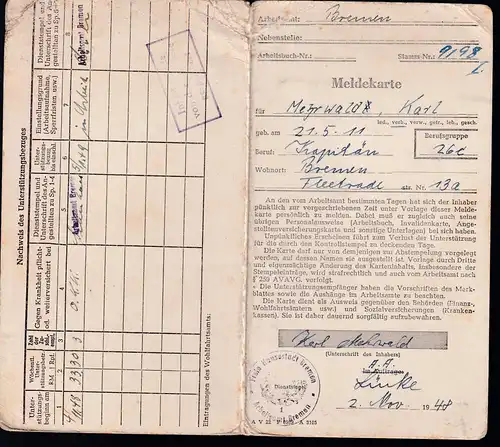 Nachweis des Unterstützungsbezuges
Unter-
stützungs-
beginn am
Wöchentl.
Unter-
stützungssatz
RM. Rpf.
Zahl
der Zu-
schl.-
empf.
Gegen Krankheit pflicht-
od. weiterversichert bei
Dienststempel und
Unterschrift des An-
gestellten zu Sp. 1-4
Unter-
stützungs-
bezug bis
einschl.
Einstellungsgrund
(Arbeitsaufnahme,
Sperrfristen usw.)
Dienststempel und
Unterschrift des An-
gestellten zu Sp. 6
1
2
3
4
5
6
7
8
33,30
3
in Arbeit
Arbeitsamt Bremen
Arbeitsamt Bremen
Eintragungen des Wohlfahrtsamts:
Arbeitsamt: Bremen
Nebenstelle:
Arbeitsbuch-Nr.: Stamm-Nr.: 9198
Meldekarte
für Karl
led., verh., verw., getr., leb., gesch.
geb. am 21.5.11
Berufsgruppe
Beruf: Kapitän 26c
Wohnort: Bremen
Str. Nr. 13a
An den vom Arbeitsamt bestimmten Tagen hat sich der Inhaber
pünktlich zur vorgeschriebenen Zeit unter Vorlage dieser Melde-
karte persönlich zu melden. Dabei muß er zugleich auch seine
übrigen Personalausweise (Arbeitsbuch, Invalidenkarte, Ange-
stelltenversicherungskarte und sonstige Unterlagen) vorlegen.
Unpünktliches Erscheinen führt zum Verlust der Unterstützung
für die durch den Kontrollstempel zu deckenden Tage.
Die Karte darf nur von demjenigen zur Abstempelung vorgelegt
werden, auf dessen Namen sie ausgestellt ist. Vorlage durch Dritte
und eigenmächtige Änderung des Karteninhalts, insbesondere der
Stempeleinträge, wird strafrechtlich und auch vom Arbeitsamt nach
§ 259 AVAVG. verfolgt.
Die Unterstützungsempfänger haben die Vorschriften des Merk-
blattes sowie die Aushänge im Arbeitsamte zu beachten.
Die Karte dient als Ausweis gegenüber den Behörden (Finanz-,
Wohlfahrtsämtern usw.) und Sozialversicherungen (Kranken-
kassen). Sie ist daher dauernd sorgfältig aufzubewahren.
Karl
(Unterschrift des Inhabers)
I. A.
Im Auftrage:
Linke
Freie Hansestadt Bremen
Dienstsiegel
Arbeitsamt Bremen
2. Nov. 1948